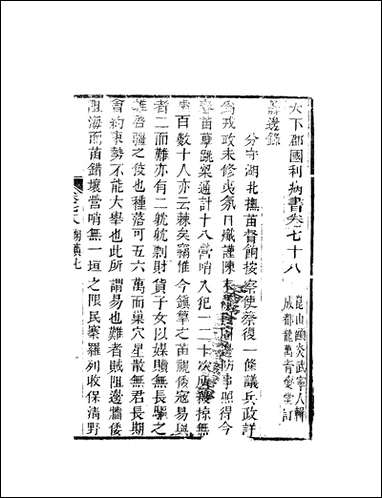 天下郡國利病書卷七十八
崑山顧炎武寧人輯
成都龍萬育燮堂訂
邊錄
分守湖北撫苗督餉按察使蔡復一條議兵政詳
爲戎政未修夷氛日熾謹陳末邊防事照得今
春苗孽跳梁通計十八營哨入犯一二十次所擄掠無
慮百數十人亦云棘矣竊惟今鎮筸之苗視倭寇易與
者二而難亦有二眈眈剽財貨子女以媒贖無長驅之
謀啓疆之伎也種落可五六萬而巢穴星散無君長期
會約束勢不能大舉也此所謂易也難者賊阻邊牆倭
阻海而苗錯壤當哨無一垣之限民寨羅列收保清野
卷七八 湖廣七